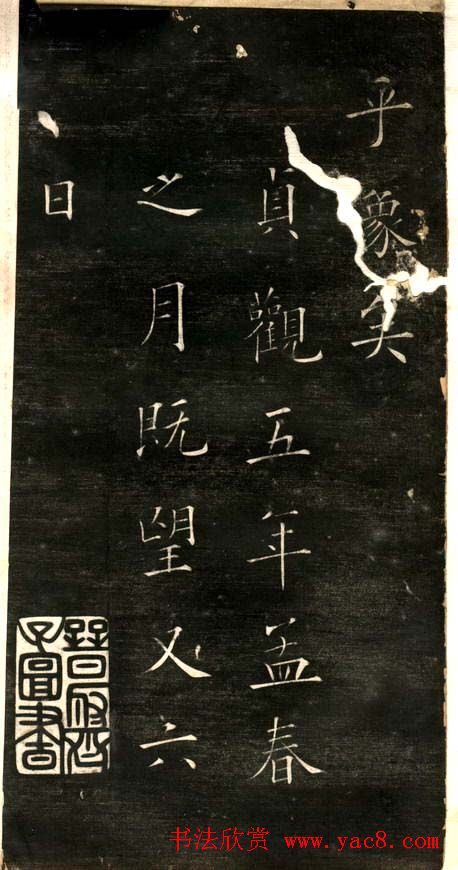 乎象矣
貞觀五年孟春
之月既望又六
日
书法欣赏 www.yac8.com